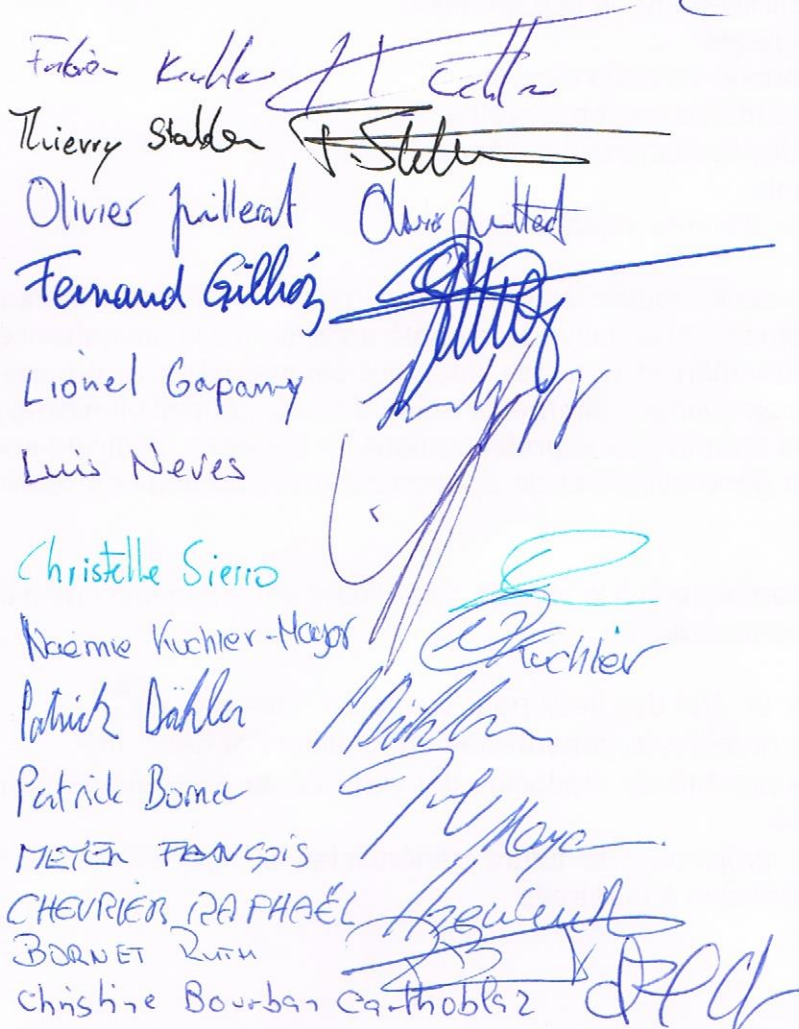 Fabian Kuhler
Thierry Stalder T. Stalder
Olivier Juillerat Olivier Juillerat
Fernand Gillioz
Lionel Gapany
Luis Neves
Christelle Sierro
Noémie Kuchler-Mayor Kuchler
Patrick Dähler Dähler
Patrick Borna
MEYER FRANÇOIS Meyer
CHEVRIER RAPHAËL
BORNET RUTH
Christine Bourban Carthoblaz